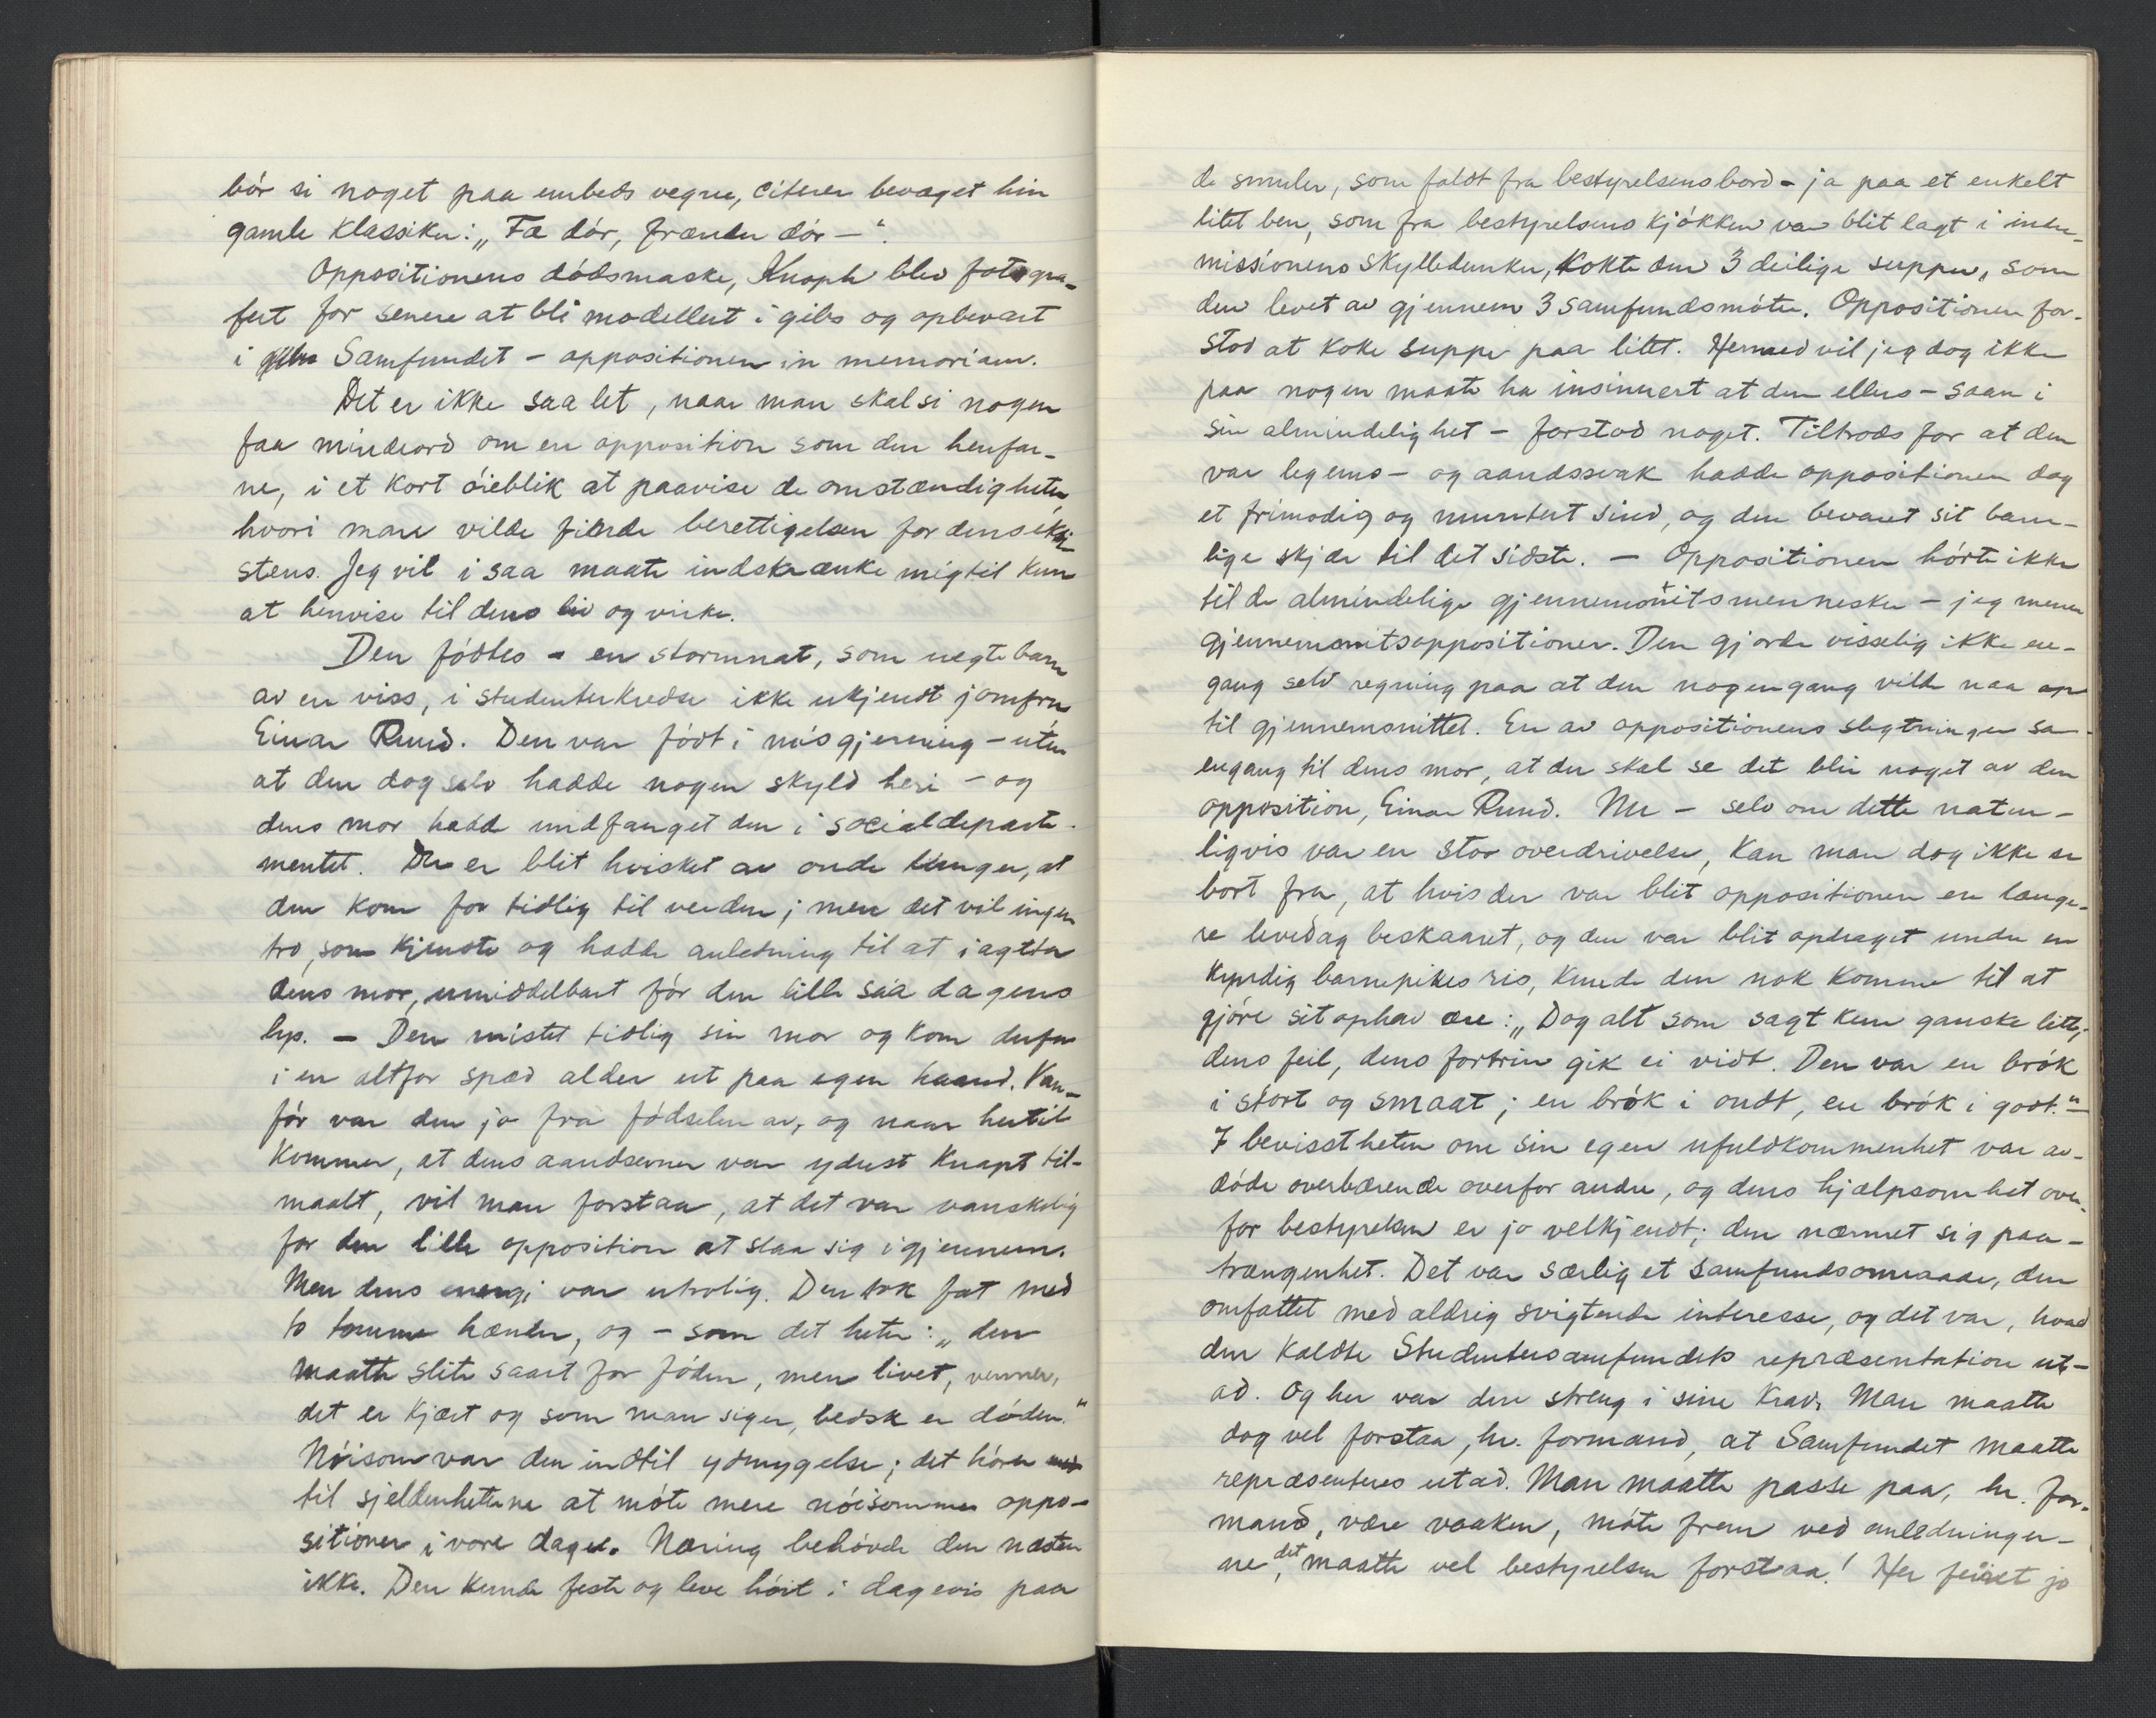 bør si noget paa embeds vegne, citerer bevæget hin
gamle klassiker: „Fæ dør, frænder dør —“.
Oppositionens dødsmaske, Knoph blev fotogra-
fert for senere at bli modellert i gibs og opbevart
i Samfundet – oppositionen in memoriam.
Det er ikke saa let, naar man skal si nogen
faa mindeord om en opposition som den henfar-
ne, i et kort øieblik at paavise de omstændigheter
hvori man vilde finde berettigelsen for dens eksi-
stens. Jeg vil i saa maate indskrænke mig til kun
at henvise til dens liv og virke.
Den fødtes – en stormnat, som uegte barn
av en viss, i studenterkredse ikke ukjendt jomfru
Einar Ruud. Den var født i misgjerning – uten
at den dog selv hadde nogen skyld heri – og
dens mor hadde undfanget den i socialdeparte-
mentet. Der er blit hvisket av onde tunger, at
den kom for tidlig til verden; men det vil ingen
tro, som kjendte og hadde anledning til at iagtta
dens mor, umiddelbart før den lille saa dagens
lys. – Den mistet tidlig sin mor og kom derfor
i en altfor spæd alder ut paa egen haand. Van-
før var den jo fra fødselen av, og naar hertil
kommer, at dens aandsevner var yderst knapt til-
maalt, vil man forstaa, at det var vanskelig
for den lille opposition at slaa sig igjennem.
Men dens energi var utrolig. Den tok fat med
to tomme hænder, og – som det heter: „den
maatte slite saart for føden, men livet, venner,
det er kjært og som man siger, bedsk er døden.“
Nøisom var den indtil ydmygelse; det hører
til sjeldenheterne at møte mere nøisomme oppo-
sitioner i vore dage. Næring behøvde den næsten
ikke. Den kunde feste og leve høit i dagevis paa
de smuler, som faldt fra bestyrelsens bord – ja paa et enkelt
litet ben, som fra bestyrelsens kjøkken var blit lagt i inter-
missionens skylledunker, kokte den 3 deilige supper, som
den levet av gjennem 3 samfundsmøter. Oppositionen for-
stod at koke suppe paa litet. Hermed vil jeg dog ikke
paa nogen maate ha insinuert at den ellers – saan i
sin almindelighet – forstod noget. Tiltrods for at den
var legems- og aandssvak hadde oppositionen dog
et frimodig og muntert sind, og den bevaret sit barn-
lige skjær til det sidste. – Oppositionen hørte ikke
til de almindelige gjennemsnitsmennesker – jeg mener
gjennemsnitsoppositioner. Den gjorde visselig ikke en-
gang selv regning paa at den nogengang vilde naa op
til gjennemsnittet. En av oppositionens slegtninger sa
engang til dens mor, at du skal se det blir noget av den
opposition, Einar Ruud. Nu – selv om dette natur-
ligvis var en stor overdrivelse, kan man dog ikke se
bort fra, at hvis der var blit oppositionen en længe-
re levedag beskaaret, og den var blit opdraget under en
kyndig barnepikes ris, kunde den nok komme til at
gjøre sit ophav ære: „Dog alt som sagt kun ganske litt;
dens feil, dens fortrin gik ei vidt. Den var en brøk
i stort og smaat; en brøk i ondt, en brøk i godt.“ –
I bevisstheten om sin egen ufuldkommenhet var av-
døde overbærende overfor andre, og dens hjælpsomhet over-
for bestyrelsen er jo velkjendt; den nærmet sig paa-
trængenhet. Det var særlig et samfundsomraade, den
omfattet med aldrig svigtende interesse, og det var, hvad
den kaldte Studentersamfundets repræsentation ut-
ad. Og her var den streng i sine krav. Man maatte
dog vel forstaa, hr. formand, at Samfundet maatte
repræsenteres utad. Man maatte passe paa, hr. for-
mand, være vaaken, møte frem ved anledninger-
ne, det maatte vel bestyrelsen forstaa! Her feiret jo